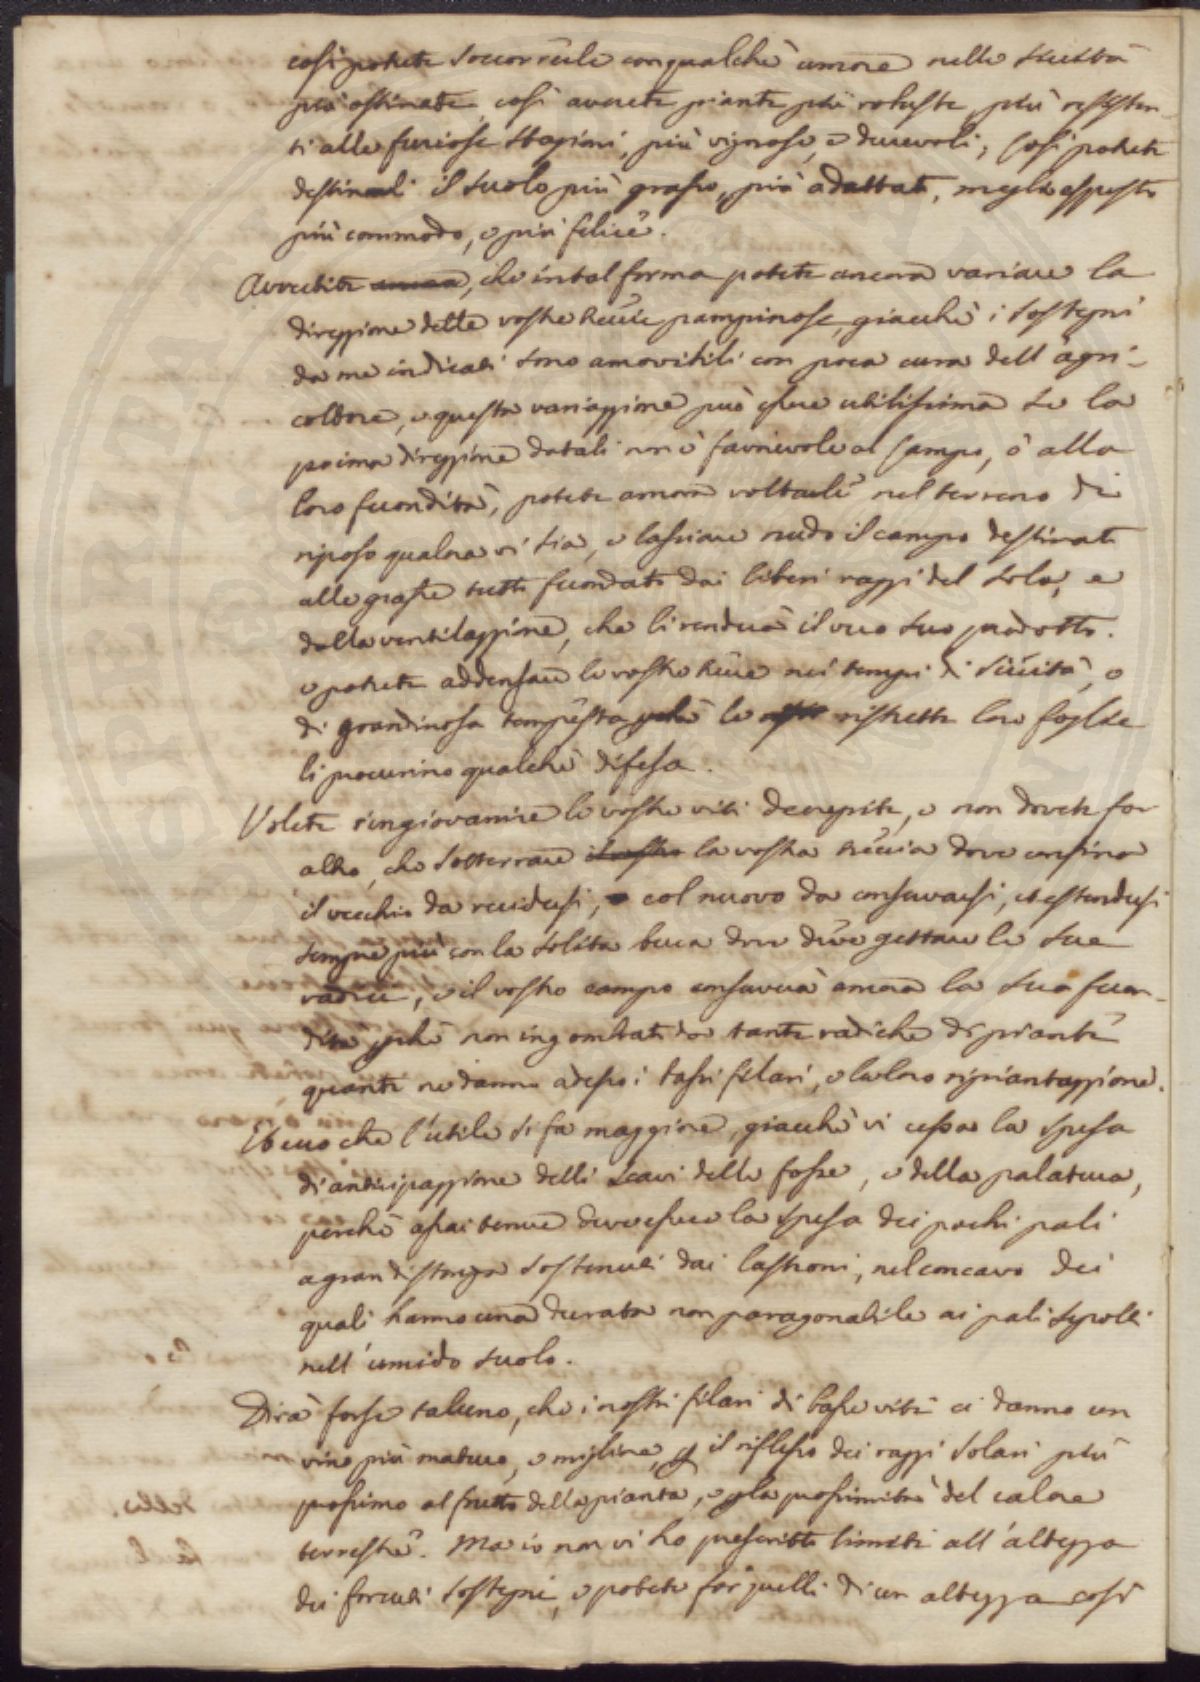 così potete soccorrerle con qualche umore nelle siccità
più ostinate, così averete piante più robuste, più resisten-
ti alle furiose stagioni, più vigorose, e durevoli; così potete
destinarli il suolo più grasso, più adattato, meglio esposto
più commodo, e più felice.
Avvertite ancora, che in tal forma potete ancora variare la
direzzione delle vostre treccie pampinose, giacchè i sostegni
da me indicati sono amovibili con poca cura dell'agri-
coltore, e questa variazzione può essere utilissima se la
prima direzzione datali non è favorevole al campo, ò alla
loro fecondità, potete ancora voltarle nel terreno di
riposo qualora vi sia, e lasciare nudo il campo destinato
alle graste tutto fecondato dai liberi raggi del sole, e
dalla ventilazzione, che li renderà il vero suo prodotto.
e potete addensare le vostre treccie nei tempi di siccità, o
di grandinosa tempesta perchè le ristrette loro foglie
li procurino qualche difesa.
Volete ringiovanire le vostre viti decrepite, e non dovete far
altro, che sotterrare la vostra treccia dove confina
il vecchio da recidersi, col nuovo da conservarsi, et estendersi
sempre più con la solita buca dove deve gettare le sue
radici, e il vostro campo conserverà ancora la sua fecon-
dità perchè non ingombrato da tante radiche di piante
quante ne danno adesso i bassi filari, e la loro ripiantazzione.
Ebbero che l'utile si fa maggiore, giacchè vi cessa la spesa
di anticipazzione delli scavi delle fosse, e della palatura,
perchè assai tenue deve essere la spesa dei pochi pali
a gran distanza sostenuti dai lastroni, nel concavo dei
quali hanno una durata non paragonabile ai pali sepolti
nell'umido suolo.
Dirà forse taluno, che i nostri filari di basse viti ci danno un
vino più maturo, e migliore, per il riflesso dei raggi solari più
prossimo al frutto della pianta, e per la prossimità del calore
terrestre. Ma io non vi ho prescritto limiti all'altezza
dei forcuti sostegni, e potete far quelli di un altezza così